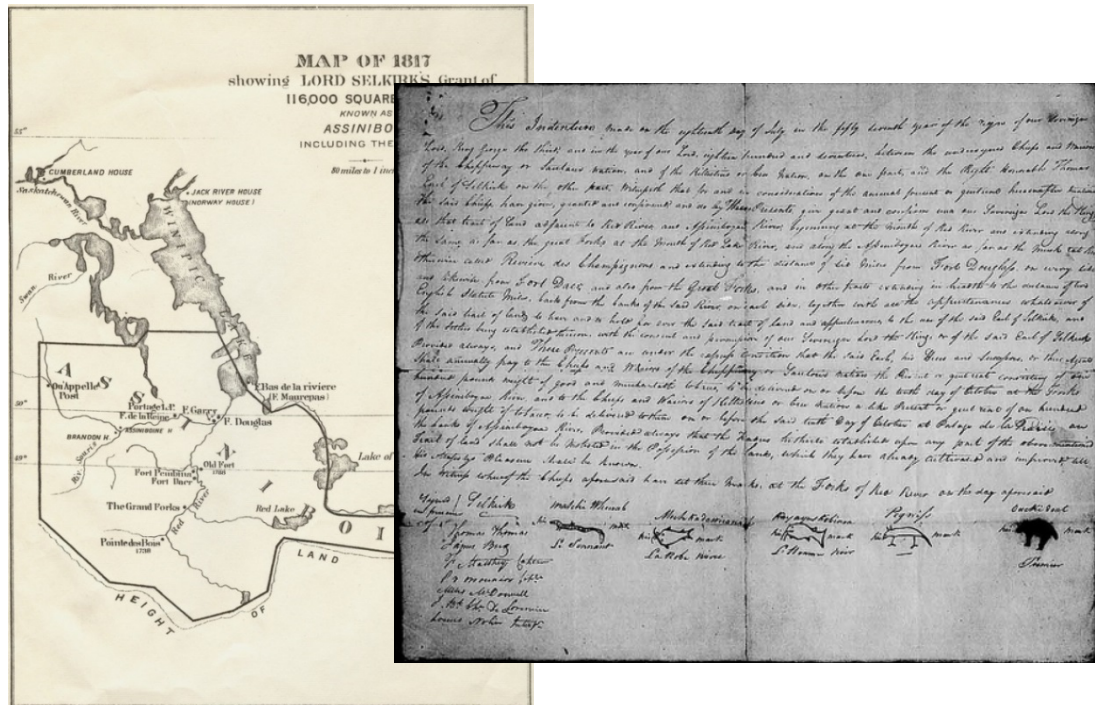 MAP OF 1817
showing LORD SELKIRKS Grant of
116,000 SQUARE
KNOWN AS
ASSINIBO
INCLUDING THE
80 miles to 1 inc
55°
CUMBERLAND HOUSE
Saskatchewan River
JACK RIVER HOUSE
(NORWAY HOUSE)
WINIPIC
LAKE
Swan River
ASSINI
BOI
Qu'Appelle
Post
Bas de la riviere
(F. Maurepas)
50°
Portage L.P.
F. de la Reine
F. Garry
F. Douglas
BRANDON H
ASSINIBOINE R
Riv. Souris
49°
Lake of
Fort Pembina
Fort Daer
Old Fort
The Grand Forks
Red River
Red Lake
Pointe des Bois
1730
LAND
HEIGHT OF
This Indenture made on the eighteenth day of July in the fifty seventh year of the reign of our Sovereign
Lord King George the third, and in the year of our Lord, eighteen hundred and seventeen, between the undersigned Chiefs and Warriors
of the Chippeway or Saulteaux Nation, and of the Killistine or Cree Nation, on the one part, and the Right Honorable Thomas
Earl of Selkirk on the other part, Witnesseth that for and in consideration of the annual present or quitrent hereinafter mentioned
the said Chiefs have given, granted and confirmed and do by these Presents, give grant and confirm unto our Sovereign Lord the King
all that tract of Land adjacent to Red River and Assiniboyne River, beginning at the mouth of Red River and extending along
the same as far as the great Forks at the mouth of Red Lake River, and along the Assiniboyne River as far as the Musk rat
otherwise called Rivière des Champignons and extending to the distance of six Miles from Fort Douglas, on every side
and likewise from Fort Daer and also from the Great Forks, and in other parts extending in breadth to the distance of two
English Statute Miles, back from the banks of the said River, on each side, together with all the appurtenances whatsoever of
the said tract of land, to have and to hold for ever the said tract of land and appurtenances to the use of the said Earl of Selkirk, and
of the Settlers being established thereon, with the consent and permission of our Sovereign Lord the King, or of the said Earl of Selkirk
Provided always, and These Presents are under the express Condition that the said Earl, his Heirs and Successors, or their Agents
shall annually pay to the Chiefs and Warriors of the Chippeway or Saulteaux nation the Present or quitrent consisting of one
hundred pounds weight of good and merchantable tobacco, to be delivered on or before the tenth day of October at the Forks
of Assiniboyne River, and to the Chiefs and Warriors of Killistine or Cree Nation a like Present or quit rent of one hundred
pounds weight of tobacco, to be delivered to them on or before the said tenth Day of October at Portage de la Prairie on
the banks of Assiniboyne River. Provided always that the traders hitherto established upon any part of the above mentioned
Tract of land shall not be molested in the Possession of the lands, which they have already cultivated and improved till
His Majestys Pleasure shall be known.
In Witness whereof the Chiefs aforesaid have set their Marks, at the Forks of Red River on the day aforesaid
Signed Selkirk
in presence
of
Thomas Thomas
James Bird
J. Bte Chs. De Lorimier
Louis Nolin
his mark
Le Sonnant
his mark
La Robe Noire
his mark
L'Homme Noir
Pegwiss
his mark
his mark
Premier